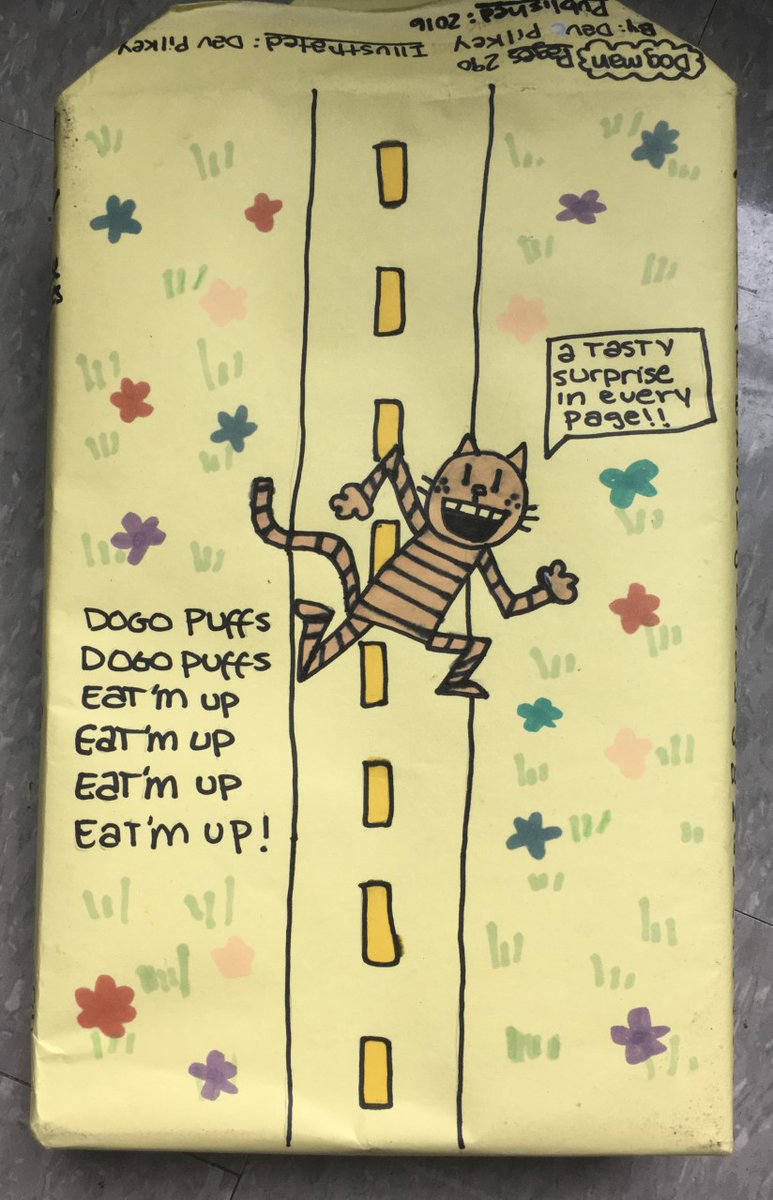 Dog man
Pages 290
By: Dav Pilkey
Published: 2016
Illustrated: Dav Pilkey
a TaSTY
surprise
in every
page!!
DOGO Puffs
DOGO puffs
Eat'm up
Eat'm up
Eat'm up
Eat'm up!